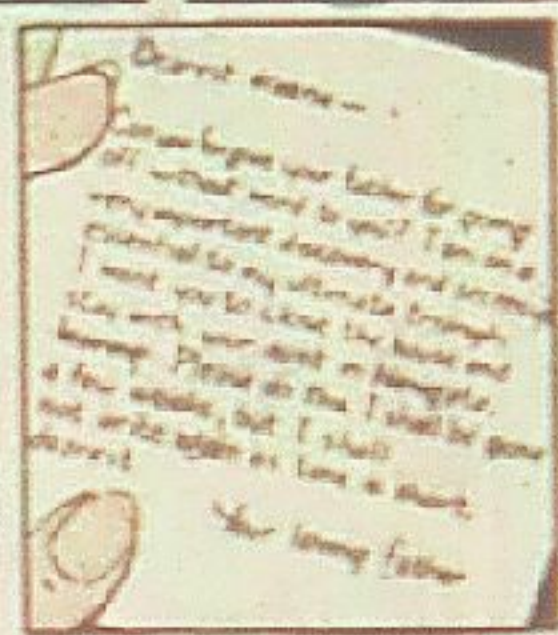 Dearest
Can you forgive your father for going
off without word to you? I am on a
very important discovery and
essential to my ultimate triumph.
I want you to close the house and
stay with your aunt in
Please do this. I shall be gone
a few weeks, but I shall
not write again as time is short,
dearest
Your loving father